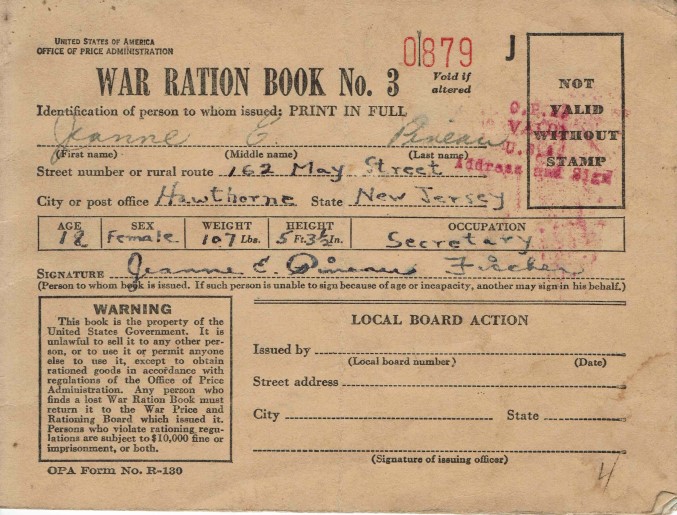 UNITED STATES OF AMERICA
OFFICE OF PRICE ADMINISTRATION
01879 J
WAR RATION BOOK No. 3 Void if altered
Identification of person to whom issued: PRINT IN FULL
Jeanne E. Pineau
(First name) (Middle name) (Last name)
Street number or rural route 162 May Street
City or post office Hawthorne State New Jersey
NOT
VALID
WITHOUT
STAMP
O.P.A.
VALID
Address and Sign
AGE SEX WEIGHT HEIGHT OCCUPATION
18 Female 107 Lbs. 5 Ft. 3½ In. Secretary
SIGNATURE Jeanne E. Pineau Fischer
(Person to whom book is issued. If such person is unable to sign because of age or incapacity, another may sign in his behalf.)
WARNING
This book is the property of the
United States Government. It is
unlawful to sell it to any other per-
son, or to use it or permit anyone
else to use it, except to obtain
rationed goods in accordance with
regulations of the Office of Price
Administration. Any person who
finds a lost War Ration Book must
return it to the War Price and
Rationing Board which issued it.
Persons who violate rationing regu-
lations are subject to $10,000 fine or
imprisonment, or both.
OPA Form No. R-130
LOCAL BOARD ACTION
Issued by
(Local board number) (Date)
Street address
City State
(Signature of issuing officer)
4